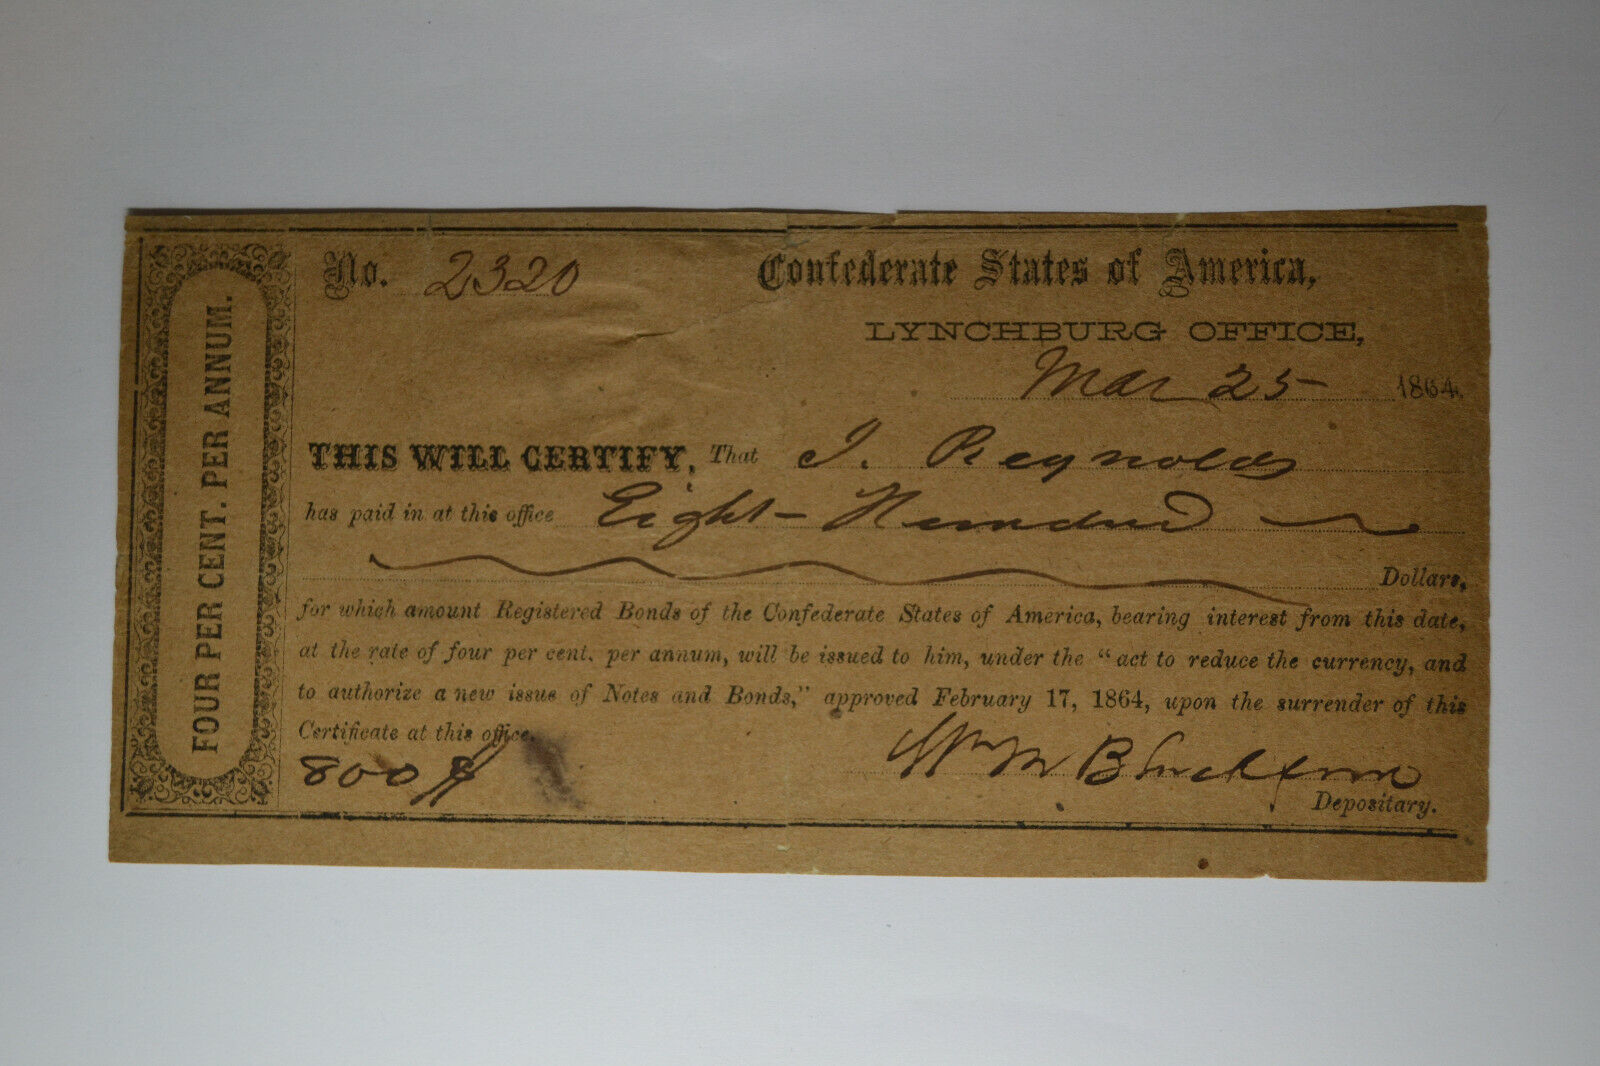 FOUR PER CENT. PER ANNUM.
No. 2320
Confederate States of America,
LYNCHBURG OFFICE,
Mar 25 1864.
THIS WILL CERTIFY, That J. Reynolds
has paid in at this office Eight Hundred
Dollars,
for which amount Registered Bonds of the Confederate States of America, bearing interest from this date,
at the rate of four per cent. per annum, will be issued to him, under the "act to reduce the currency, and
to authorize a new issue of Notes and Bonds," approved February 17, 1864, upon the surrender of this
Certificate at this office.
800 $
Wm M Blackford
Depositary.